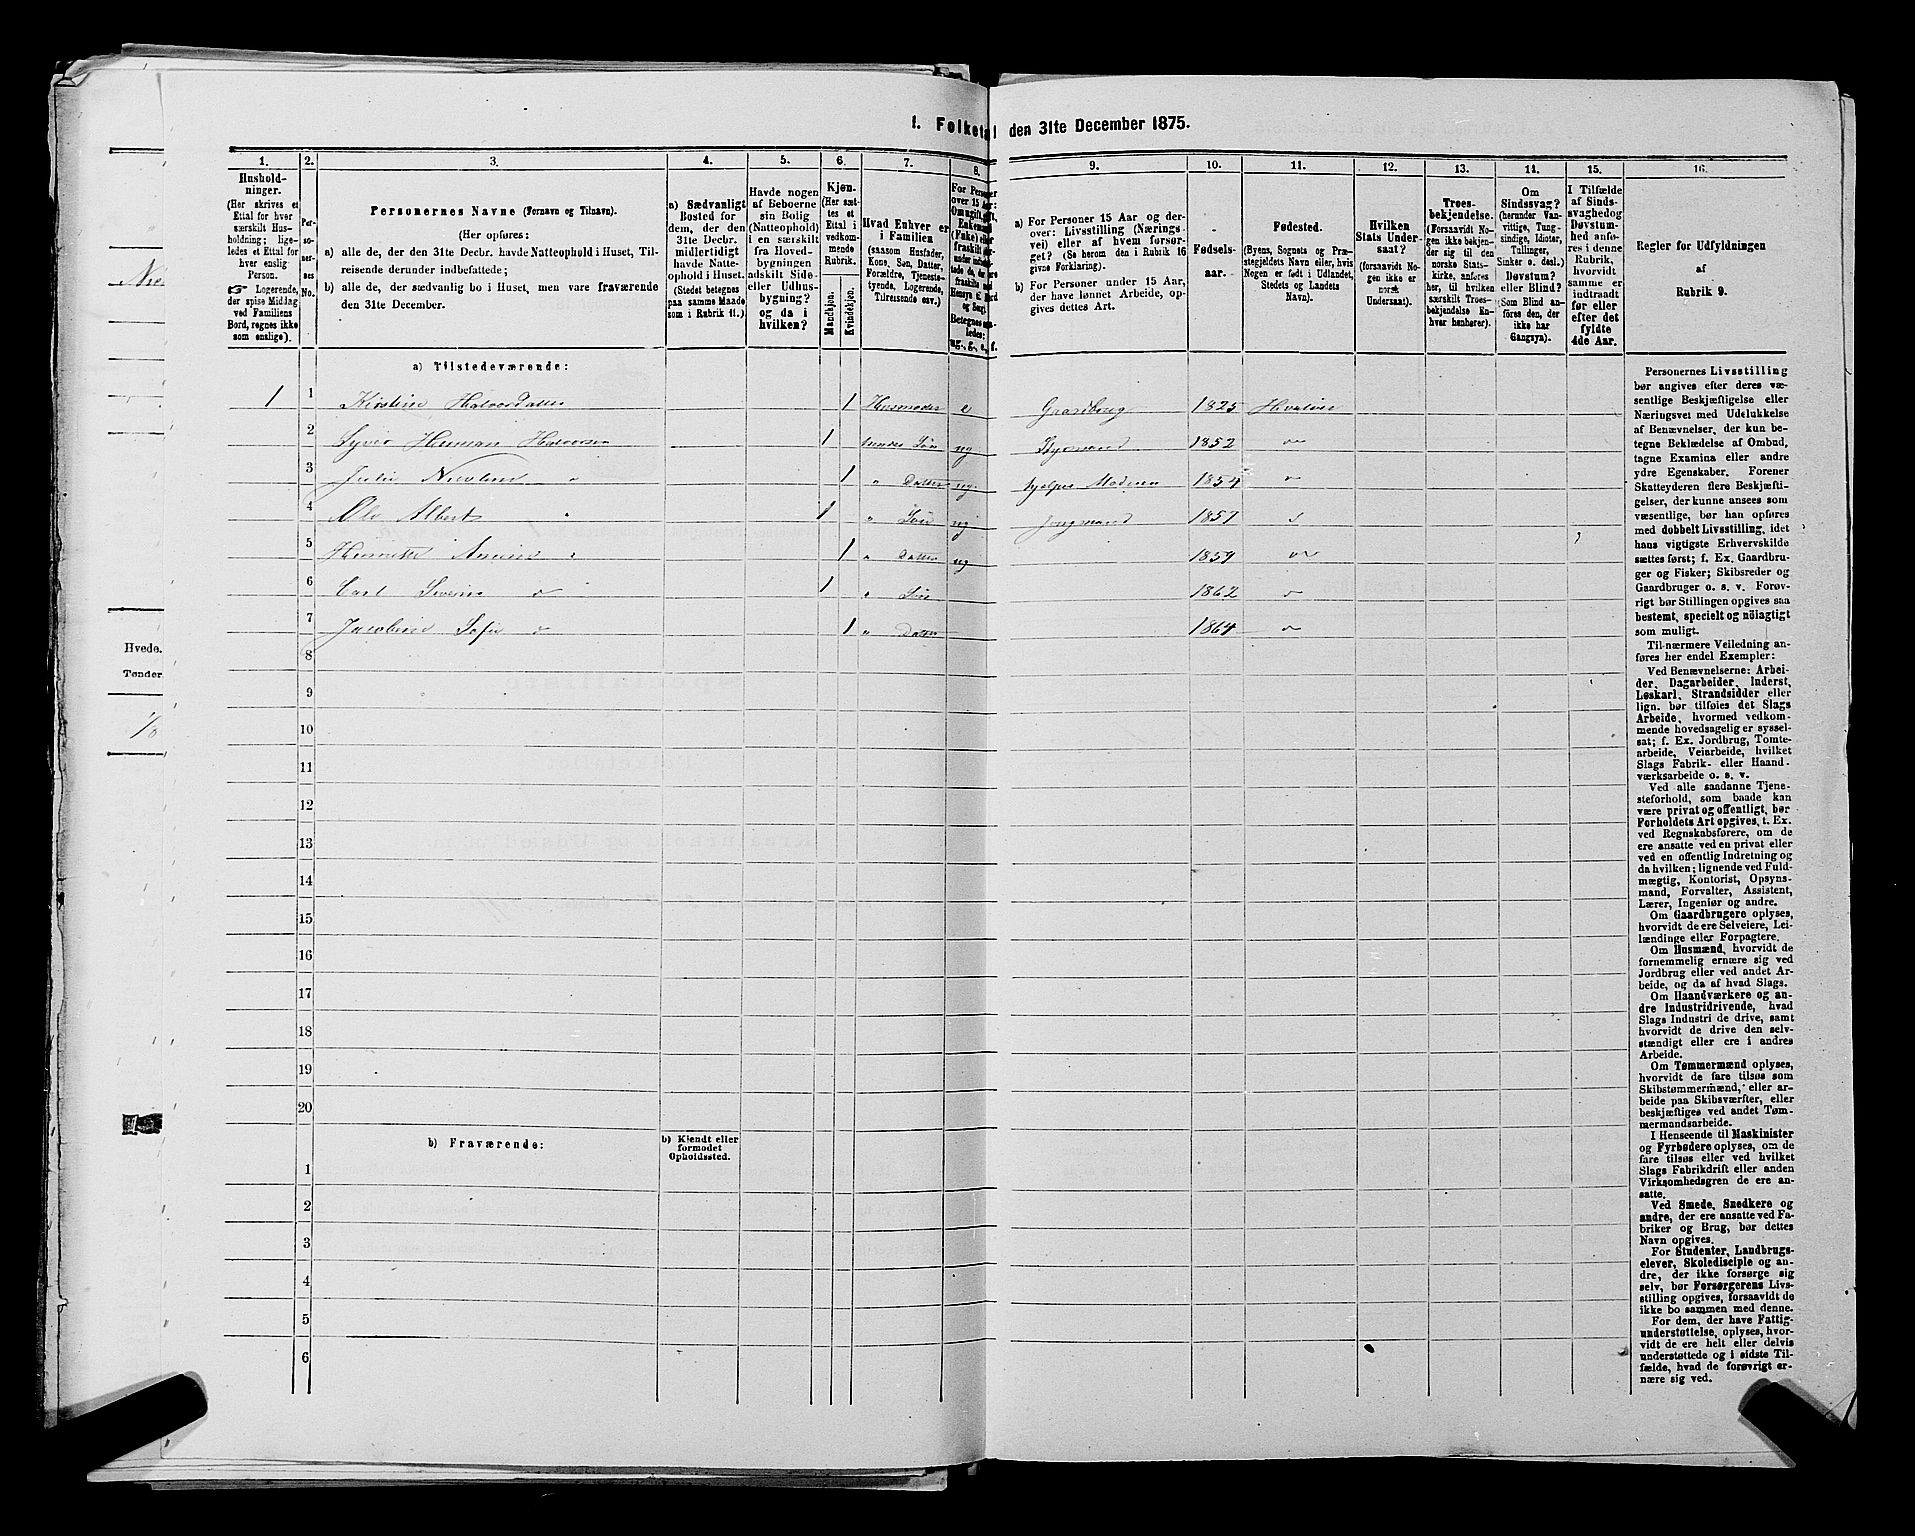 1. Folketal den 31te December 1875.
1. 2. 3. 4. 5. 6. 7. 8. 9. 10. 11. 12. 13. 14. 15. 16.
Husholdninger.
(Her skrives et
Ettal for hver
særskilt Husholdning;
ligeledes
et Ettal for
hver enslig
Person.
☞ Logerende,
der spise Middag
ved Familiens
Bord, regnes ikke
som enslige).
Personernes No.
Personernes Navne (Fornavn og Tilnavn).
(Her opføres:
a) alle de, der den 31te Decbr. havde Natteophold i Huset, Tilreisende
derunder indbefattede;
b) alle de, der sædvanlig bo i Huset, men vare fraværende
den 31te December.
a) Sædvanligt
Bosted for
dem, der den
31te Decbr.
midlertidigt
havde Natteophold
i Huset.
(Stedet betegnes
paa samme Maade
som i Rubrik 11.)
Havde nogen
af Beboerne
sin Bolig
(Natteophold)
i en særskilt
fra Hovedbygningen
adskilt Side-
eller Udhusbygning?
og da i
hvilken?
Kjøn.
(Her sættes
et
Ettal i
vedkommende
Rubrik.
Mandkjøn.
Kvindekjøn.
Hvad Enhver er
i Familien
(saasom Husfader,
Kone, Søn, Datter,
Forældre, Tjenestetyende,
Logerende,
Tilreisende osv.)
a) For Personer 15 Aar og derover:
Livsstilling (Næringsvei)
eller af hvem forsørget?
(Se herom den i Rubrik 16
givne Forklaring).
b) For Personer under 15 Aar,
der have lønnet Arbeide, opgives
dettes Art.
Fødselsaar.
Fødested.
(Byens, Sognets og Præstegjeldets
Navn eller, hvis
Nogen er født i Udlandet,
Stedets og Landets
Navn).
Hvilken
Stats Undersaat?
(forsaavidt Nogen
ikke er
norsk
Undersaat).
Troesbekjendelse.
(Forsaavidt Nogen
ikke bekjender
sig til den
norske Statskirke,
anføres
her, til hvilken
særskilt Troesbekjendelse
Enhver
henhører).
Om
Sindssvag?
(herunder Vanvittige,
Tungsindige,
Idioter,
Tullinger,
Sinker o. desl.)
Døvstum?
eller Blind?
(Som Blind anføres
den, der
ikke har
Gangsyn).
I Tilfælde
af Sindssvaghed
og
Døvstumhed
anføres
i denne
Rubrik,
hvorvidt
samme er
indtraadt
før eller
efter det
fyldte
4de Aar.
Regler for Udfyldningen
af
Rubrik 9.
a) Tilstedeværende:
1 1 Kirstine Halvorsdatter 1 Husmoder e Gaardbrug 1825 Hvaløer
2 Syver Herman Halvorsen 1 hendes Søn ug Styrmand 1852
3 Julie Nicoline 1 " Datter ug hjelper Moderen 1854
4 Ole Albert 1 " Søn ug Jungmand 1857
5 1 " Datter ug 1859
6 Carl Severin 1 " Søn 1862
7 Jacobine Sofie 1 " Datter 1864
8
9
10
11
12
13
14
15
16
17
18
19
20
b) Fraværende:
b) Kjendt eller
formodet
Opholdssted.
1
2
3
4
5
6
Personernes Livsstilling
bør angives efter deres væsentlige
Beskjæftigelse eller
Næringsvei med Udelukkelse
af Benævnelser, der kun betegne
Beklædelse af Ombud,
tagne Examina eller andre
ydre Egenskaber. Forener
Skatteyderen flere Beskjæftigelser,
der kunne ansees som
væsentlige, bør han opføres
med dobbelt Livsstilling, idet
hans vigtigste Erhvervskilde
sættes først; f. Ex. Gaardbruger
og Fisker; Skibsreder og
Gaardbruger o. s. v. Forøvrigt
bør Stillingen opgives saa
bestemt, specielt og nöiagtigt
som muligt.
Til nærmere Veiledning anføres
her endel Exempler:
Ved Benævnelserne: Arbeider,
Dagarbeider, Inderst,
Løskarl, Strandsidder eller
lign. bør tilføies det Slags
Arbeide, hvormed vedkommende
hovedsagelig er sysselsat;
f. Ex. Jordbrug, Tomtearbeide,
Veiarbeide, hvilket
Slags Fabrik- eller Haandværksarbeide
o. s. v.
Ved alle saadanne Tjenesteforhold,
som baade kan
være privat og offentligt, bør
Forholdets Art opgives, t. Ex.
ved Regnskabsførere, om de
ere ansatte ved en privat eller
ved en offentlig Indretning og
da hvilken; lignende ved Fuldmægtig,
Kontorist, Opsynsmand,
Forvalter, Assistent,
Lærer, Ingeniør og andre.
Om Gaardbrugere oplyses,
hvorvidt de ere Selveiere, Leilændinge
eller Forpagtere.
Om Husmænd, hvorvidt de
fornemmelig ernære sig ved
Jordbrug eller ved andet Arbeide,
og da af hvad Slags.
Om Haandværkere og andre
Industridrivende, hvad
Slags Industri de drive, samt
hvorvidt de drive den selvstændigt
eller ere i andres
Arbeide.
Om Tømmermænd oplyses,
hvorvidt de fare tilsøs som
Skibstømmermænd, eller arbeide
paa Skibsværfter, eller
beskjæftiges ved andet Tømmermandsarbeide.
I Henseende til Maskinister
og Fyrbødere oplyses, om de
fare tilsøs eller ved hvilket
Slags Fabrikdrift eller anden
Virksomhedsgren de ere ansatte.
Ved Smede, Snedkere og
andre, der ere ansatte ved Fabriker
og Brug, bør dettes
Navn opgives.
For Studenter, Landbrugselever,
Skoledisciple og andre,
der ikke forsørge sig
selv, bør Forsørgerens Livsstilling
opgives, forsaavidt de
ikke bo sammen med denne.
For dem, der have Fattigunderstøttelse,
oplyses, hvorvidt
de ere helt eller delvis
understøttede og i sidste Tilfælde,
hvad de forøvrigt ernære
sig ved.
Hvede.
Tønder.
1/8